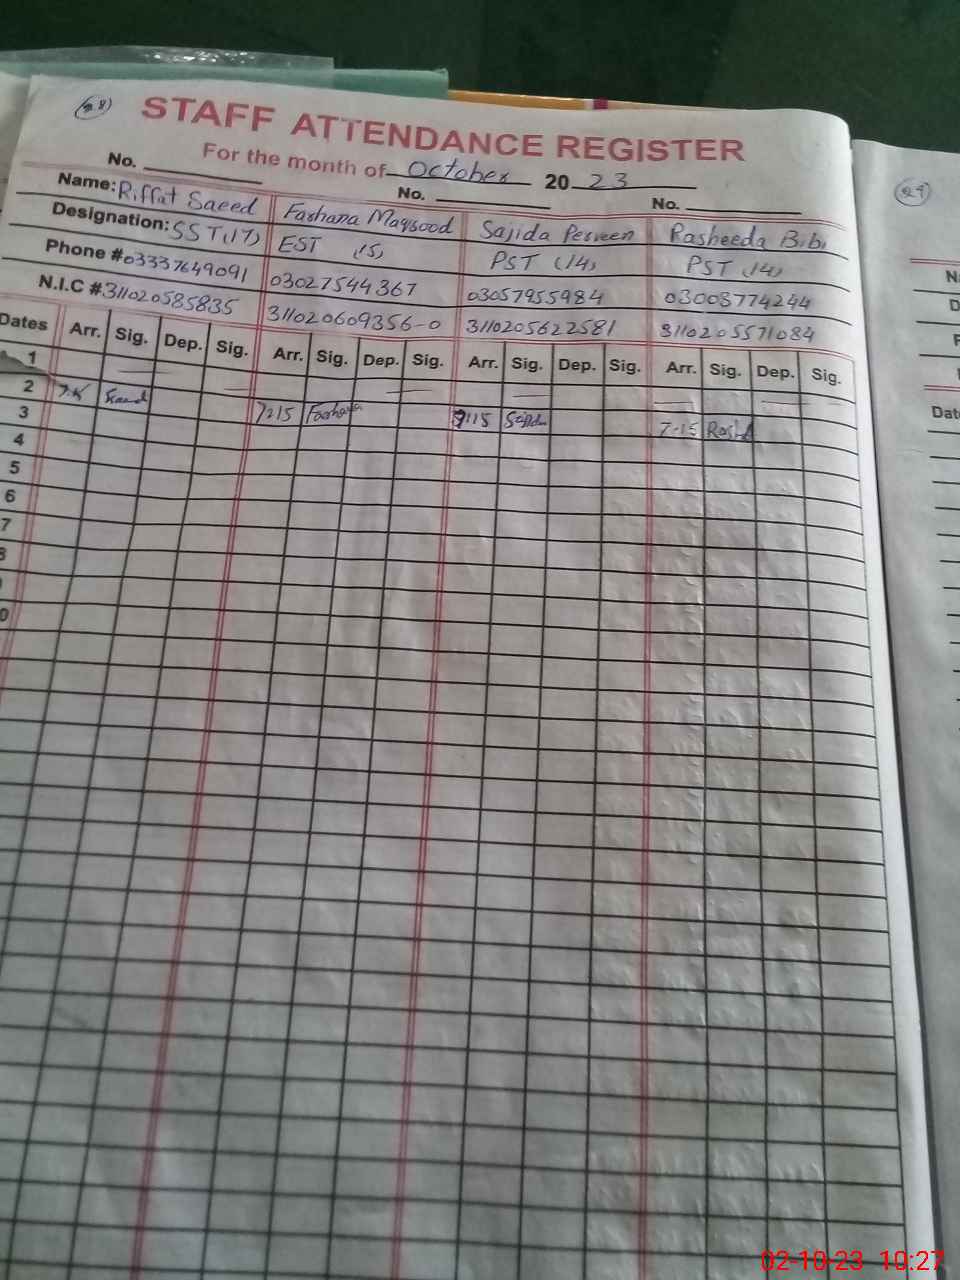 28
STAFF ATTENDANCE REGISTER
For the month of October 20 23
No. No. No.
Name: Riffat Saeed Farhana Maqsood Sajida Perveen Rasheeda Bibi
Designation: SST (17) EST (15) PST (14) PST (14)
Phone # 03337649091 03027544367 03057955984 03008774244
N.I.C #. 311020585835 311020609356-0 3110205622581 3110205571084
Dates Arr. Sig. Dep. Sig. Arr. Sig. Dep. Sig. Arr. Sig. Dep. Sig. Arr. Sig. Dep. Sig.
1
2 Saeed 7:15 Farhana 7:15 Sajida 7-15
3
4
5
6
7
8
0
29
N
D
P
Date
02-10-23 10:27